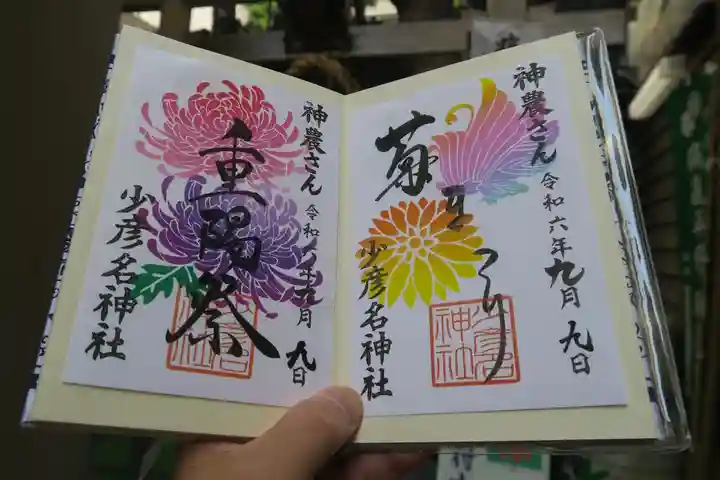 神農さん
令和六年九月
九日
重陽祭
少彦名神社
神農さん
令和六年九月
九日
菊まつり
少彦名神社